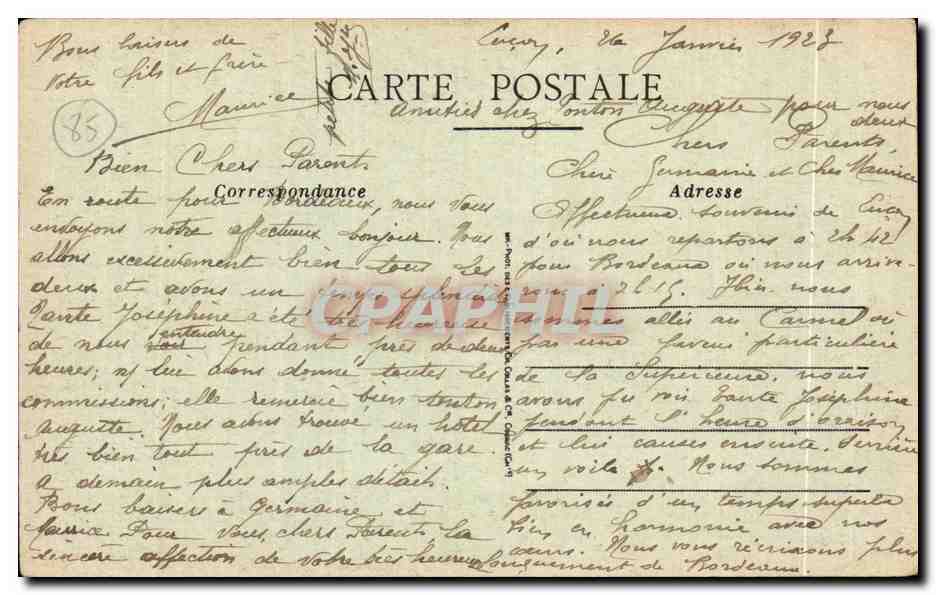 Luçon, 26 Janvier 1923
Bons baisers de
votre fils et frère
Maurice
petite fille
CARTE POSTALE
Amitiés chez Tonton Auguste pour nous
deux
85
Bien Chers Parents
Correspondance
En route pour Bordeaux, nous vous
envoyons notre affectueux bonjour. Nous
allons excessivement bien tous les
deux et avons un temps splendide
Tante Joséphine a été très heureuse
de nous entendre pendant près de deux
heures; ns lui avons donné toutes les
commissions; elle remercie bien tonton
Auguste. Nous avons trouvé un hôtel
très bien tout près de la gare.
A demain plus amples détails.
Bons baisers à Germaine et
Maurice. Pour vous, chers Parents, la
sincère affection de votre très heureuse
Chers Parents,
Chère Germaine et Cher Maurice
Adresse
Affectueux souvenir de Luçon
d'où nous repartons à 2h 42
pour Bordeaux où nous arrive-
rons à 2h 15. Hier nous
sommes allés au Carmel où
par une faveur particulière
de la Supérieure, nous
avons pu voir Tante Joséphine
pendant l'heure d'oraison
et lui causer ensuite derrière
un voile. Nous sommes
favorisés d'un temps superbe
bien en harmonie avec nos
cœurs. Nous vous récrirons plus
longuement de Bordeaux.
CPAPHIL